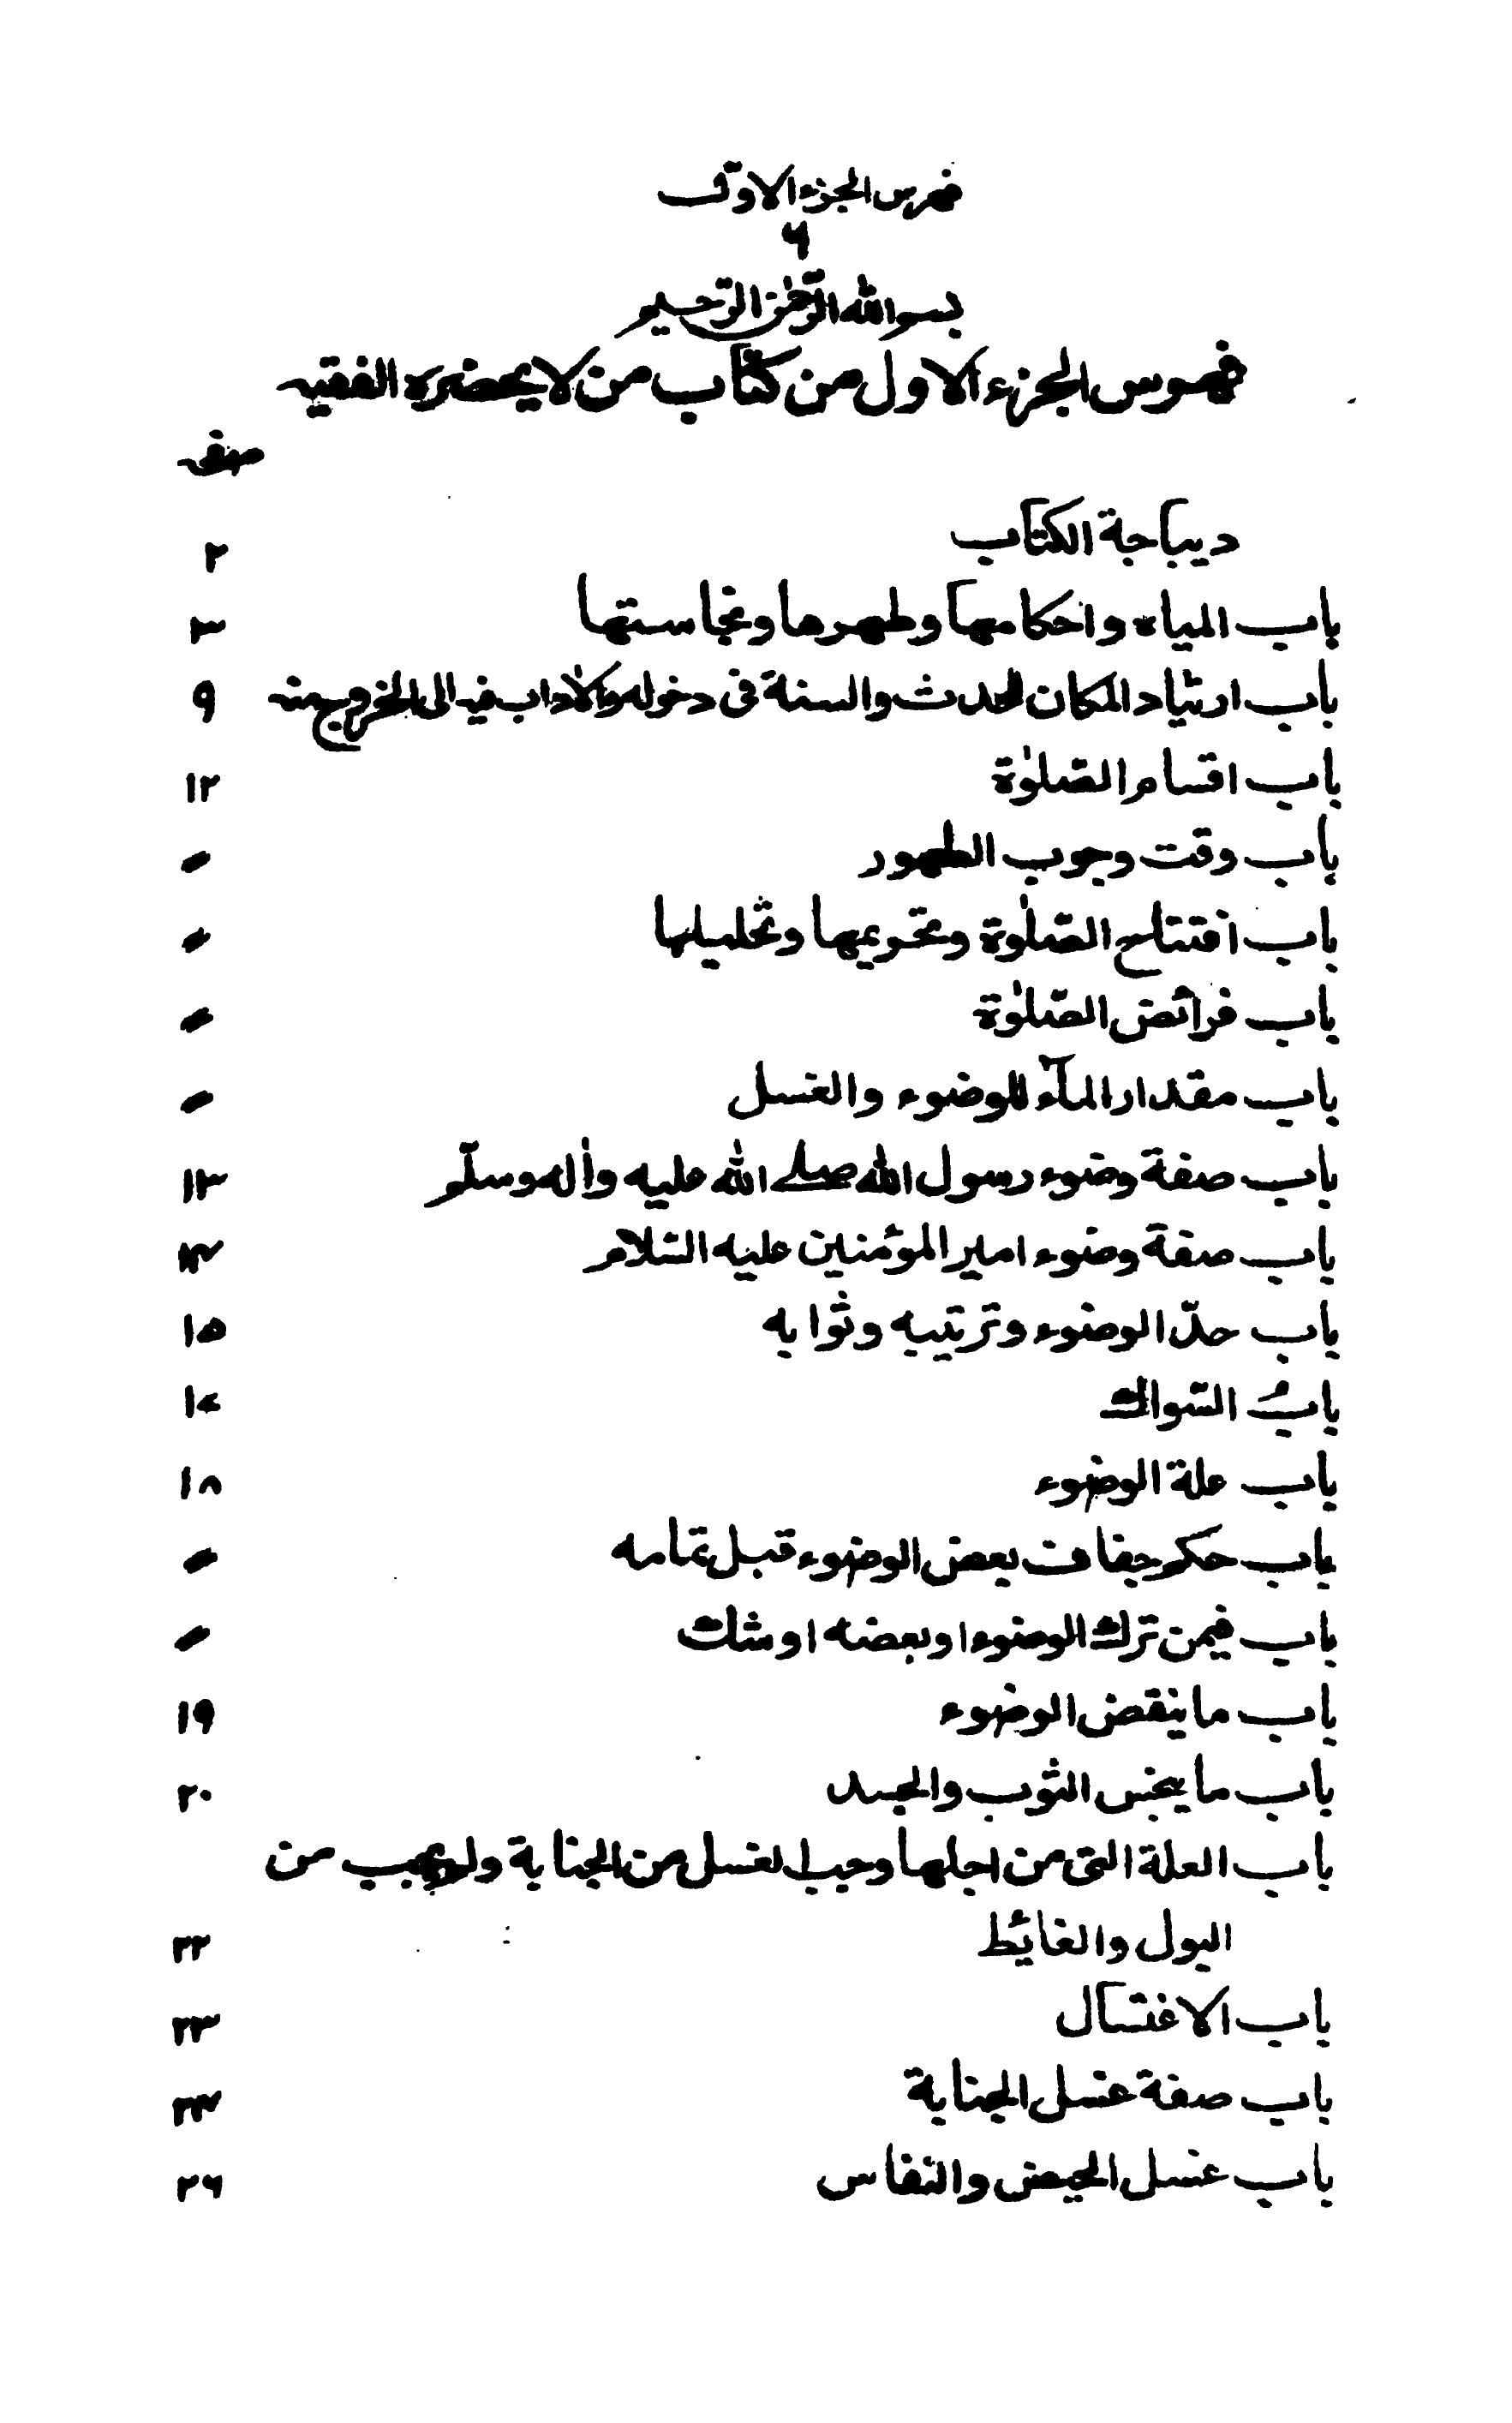 فهرس الجزء الاول
بسم الله الرحمن الرحيم
فهرس الجزء الاول من كتاب من لا يحضره الفقيه
صفحه
ديباجة الكتاب ٢
باب المياه واحكامها وطهرها ونجاستها ٣
باب ارتياد المكان للحدث والسنة فى دخوله والاداب فيه الى الخروج منه ٩
باب اقسام الصّلوٰة ١٢
باب وقت وجوب الطهور ″
باب افتتاح الصّلوٰة وتحريمها وتحليلها ″
باب فرائض الصّلوٰة ″
باب مقدار المآء للوضوء والغسل ″
باب صفة وضوء رسول الله صلى الله عليه واٰله وسلّم ١٣
باب صفة وضوء امير المؤمنين عليه السّلام ١٤
باب حدّ الوضوء وترتيبه وثوابه ١٥
باب السّواك ١٦
باب علة الوضوء ١٨
باب حكم جفاف بعض الوضوء قبل تمامه ″
باب فيمن ترك الوضوء او بعضه او شك ″
باب ما ينقض الوضوء ١٩
باب ما ينجس الثوب والجسد ٢٠
باب العلة التى من اجلها وجب الغسل من الجنابة ولم يجب من
البول والغائط ٢٢
باب الاغتسال ٢٣
باب صفة غسل الجنابة ٢٤
باب غسل الحيض والنفاس ٢٦